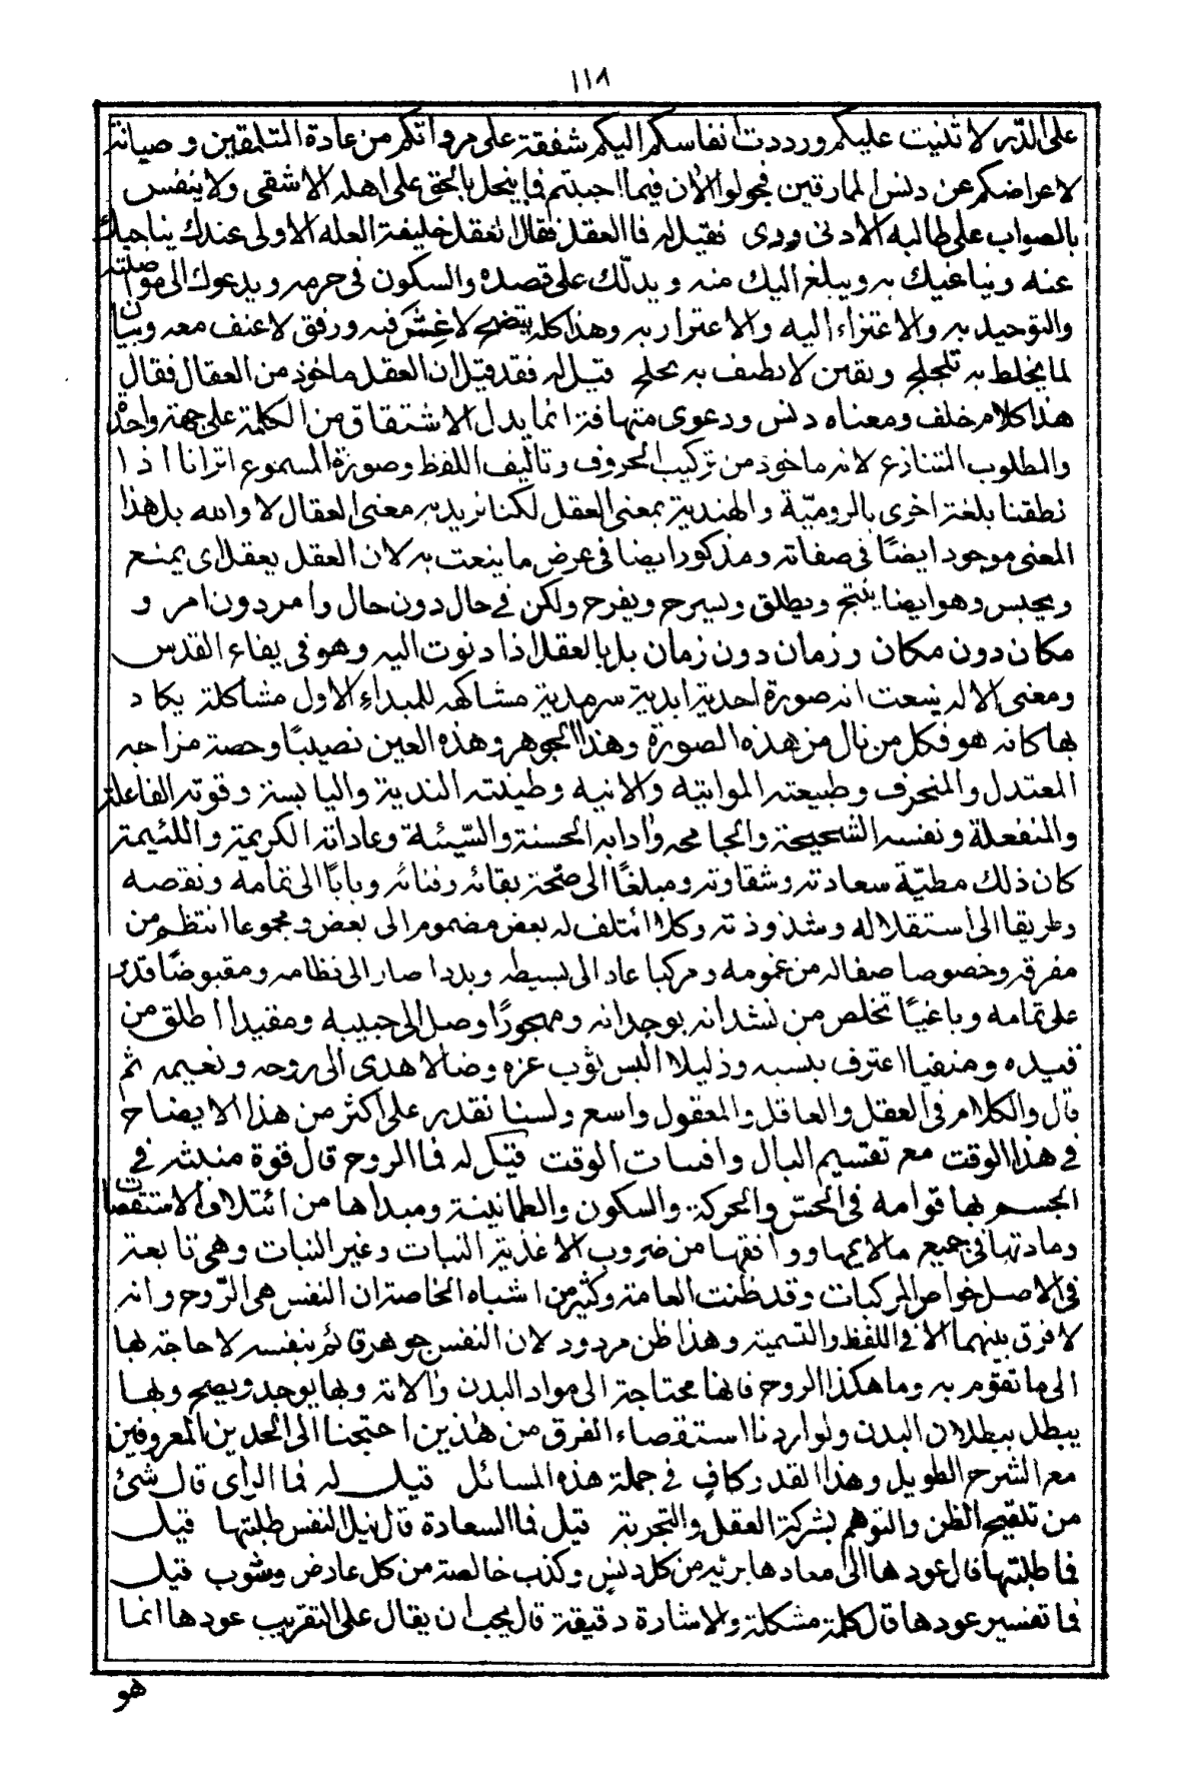 ١١٨
على الذرر لا ثنيت عليكم ورددت أنفاسكم اليكم شفقة على مرواتكم من عادة المتملقين وصيانة
لاعراضكم عن دنس المارقين فجولوا الآن فيما احببتم فما ينحل بالحق على اهله الا شقى ولا ينفس
بالصواب على طالبه الا دنى وردى فقيل له فما العقل فقال العقل خليفة العلة الاولى عندك يناجيك
عنه ويناغيك به ويبلغ اليك منه ويدلّك على قصده والسكون فى حرمه ويدعوك الى مواصلته
والتوحيد به والاعتزاء اليه والاعتزاز به وهذا كله بنصح لا غش فيه ورفق لا عنف معه وبيان
لا يختلط به تلجلج ويقين لا يطيف به قيل له فقد قيل ان العقل ماخوذ من العقال فقال
هذا كلام خلف ومعناه دنس ودعوى متهافتة انما يدل الاشتقاق من الكلمة على جهة واحدة
والمطلوب المتنازع لانه ماخوذ من تركيب الحروف وتاليف اللفظ وصورة المسموع اترانا اذا
نطقنا بلغة اخرى بالروميّة والهندية بمعنى العقل لكنا نريد به معنى العقال لا والله بل هذا
المعنى موجود ايضًا فى صفاته ومذكور ايضا فى عرض ما ينعت به لان العقل يعقل اى يمنع
ويحبس وهو ايضا يبيح ويطلق ويسرح ويفرح ولكن فى حال دون حال وامر دون امر و
مكان دون مكان وزمان دون زمان بل بالعقل اذا دنوت اليه وهو فى يفاع القدس
ومعنى الاله ينعت انه صورة احدية ابدية سرمدية مشاكهه للمبداء الاول مشاكلة يكاد
بها كانه هو فكل من نال من هذه الصورة وهذا الجوهر وهذه العين نصيبًا وحصة مزاجه
المعتدل والمنحرف وطبيعته المواتيه والابيه وطينته الندية واليابسة وقوته الفاعلة
والمنفعلة ونفسه الشحيحة والجامحه وادابه الحسنة والسّيئة وعاداته الكريمة واللئيمة
كان ذلك مطيّة سعادته وشقاوته ومبلغًا الى صحة بقائه وفنائه وبابًا الى تمامه ونقصه
وطريقا الى استقلاله وشذوذته وكلا ائتلف له بعض مضموم الى بعض ومجموعا انتظم من
مفرقه وخصوصا صفاله من عمومه ومركبا عاد الى بسيطه وبددا صار الى نظامه ومقبوضًا قدر
على تمامه وباغيًا تخلص من نشدانه بوجدانه ومهجورًا وصل الى حبيبه ومقيدا اطلق من
قيده ومنفيا اعترف بنسبه وذليلا البس ثوب عزه وضالا هدى الى روحه ونعيمه ثم
قال والكلام فى العقل والعاقل والمعقول واسع ولسنا نقدر على اكثر من هذا الايضاح
فى هذا الوقت مع تقسيم البال وافسات الوقت قيل له فما الروح قال قوة منبثه فى
الجسم بها قوامه فى الحسّ والحركة والسكون والطمانينة ومبداها من ائتلاف الاستقصات
ومادتها فى جميع ما لايمها ووافقها من ضروب الاغذية النبات وغير النبات وهى تابعة
فى الاصل خواص المركبات وقد ظنت العامة وكثير من اشباه الخاصة ان النفس هى الرّوح وانه
لا فرق بينهما الا فى اللفظ والتسمية وهذا ظن مردود لان النفس جوهر قائم بنفسه لا حاجة بها
الى ما تقوم به وما هكذا الروح فانها محتاجة الى مواد البدن وآلاته وبها يوجد ويصح وبها
يبطل ببطلان البدن ولو اردنا استقصاء الفرق من هذين احتجنا الى الحدين المعروفين
مع الشرح الطويل وهذا القدر كافٍ فى جملة هذه المسائل قيل له فما الراى قال شئ
من تلقيح الظن والتوهم بشركة العقل والتجربة قيل فما السعادة قال نيل النفس طلبتها قيل
فما طلبتها قال عودها الى معادها بريه من كل دنس وكذب خالصة من كل عارض وشوب قيل
فما تفسير عودها قال كلمة مشكلة والاشارة دقيقة قال يجب ان يقال على التقريب عودها انما
هو